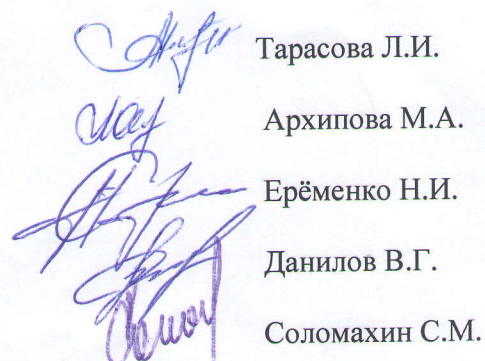 Тарасова Л.И.
Архипова М.А.
Ерёменко Н.И.
Данилов В.Г.
Соломахин С.М.